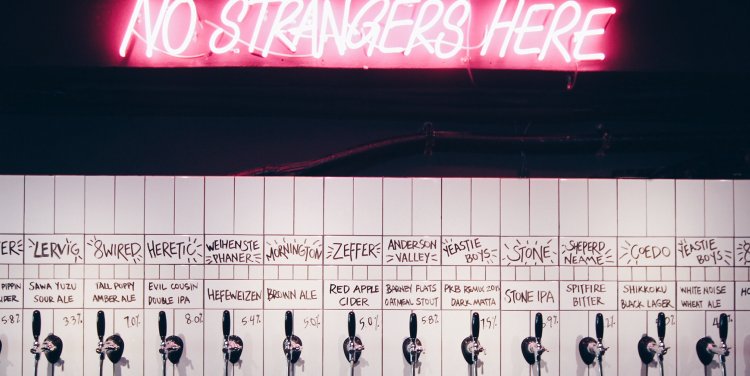 NO STRANGERS HERE
LERVIG
8WIRED
HERETIC
WEIHENSTE
PHANER
MORNINGTON
ZEFFER
ANDERSON
VALLEY
YEASTIE
BOYS
STONE
SHEPERD
NEAME
COEDO
YEASTIE
BOYS
PIPPIN
SAWA YUZU
SOUR ALE
TALL POPPY
AMBER ALE
EVIL COUSIN
DOUBLE IPA
HEFEWEIZEN
BROWN ALE
RED APPLE
CIDER
BARNEY FLATS
OATMEAL STOUT
PKB REMIX 2014
DARK MATTA
STONE IPA
SPITFIRE
BITTER
SHIKKOKU
BLACK LAGER
WHITE NOISE
WHEAT ALE
5.8%
3.3%
7.0%
8.0%
5.4%
5.0%
5.0%
5.8%